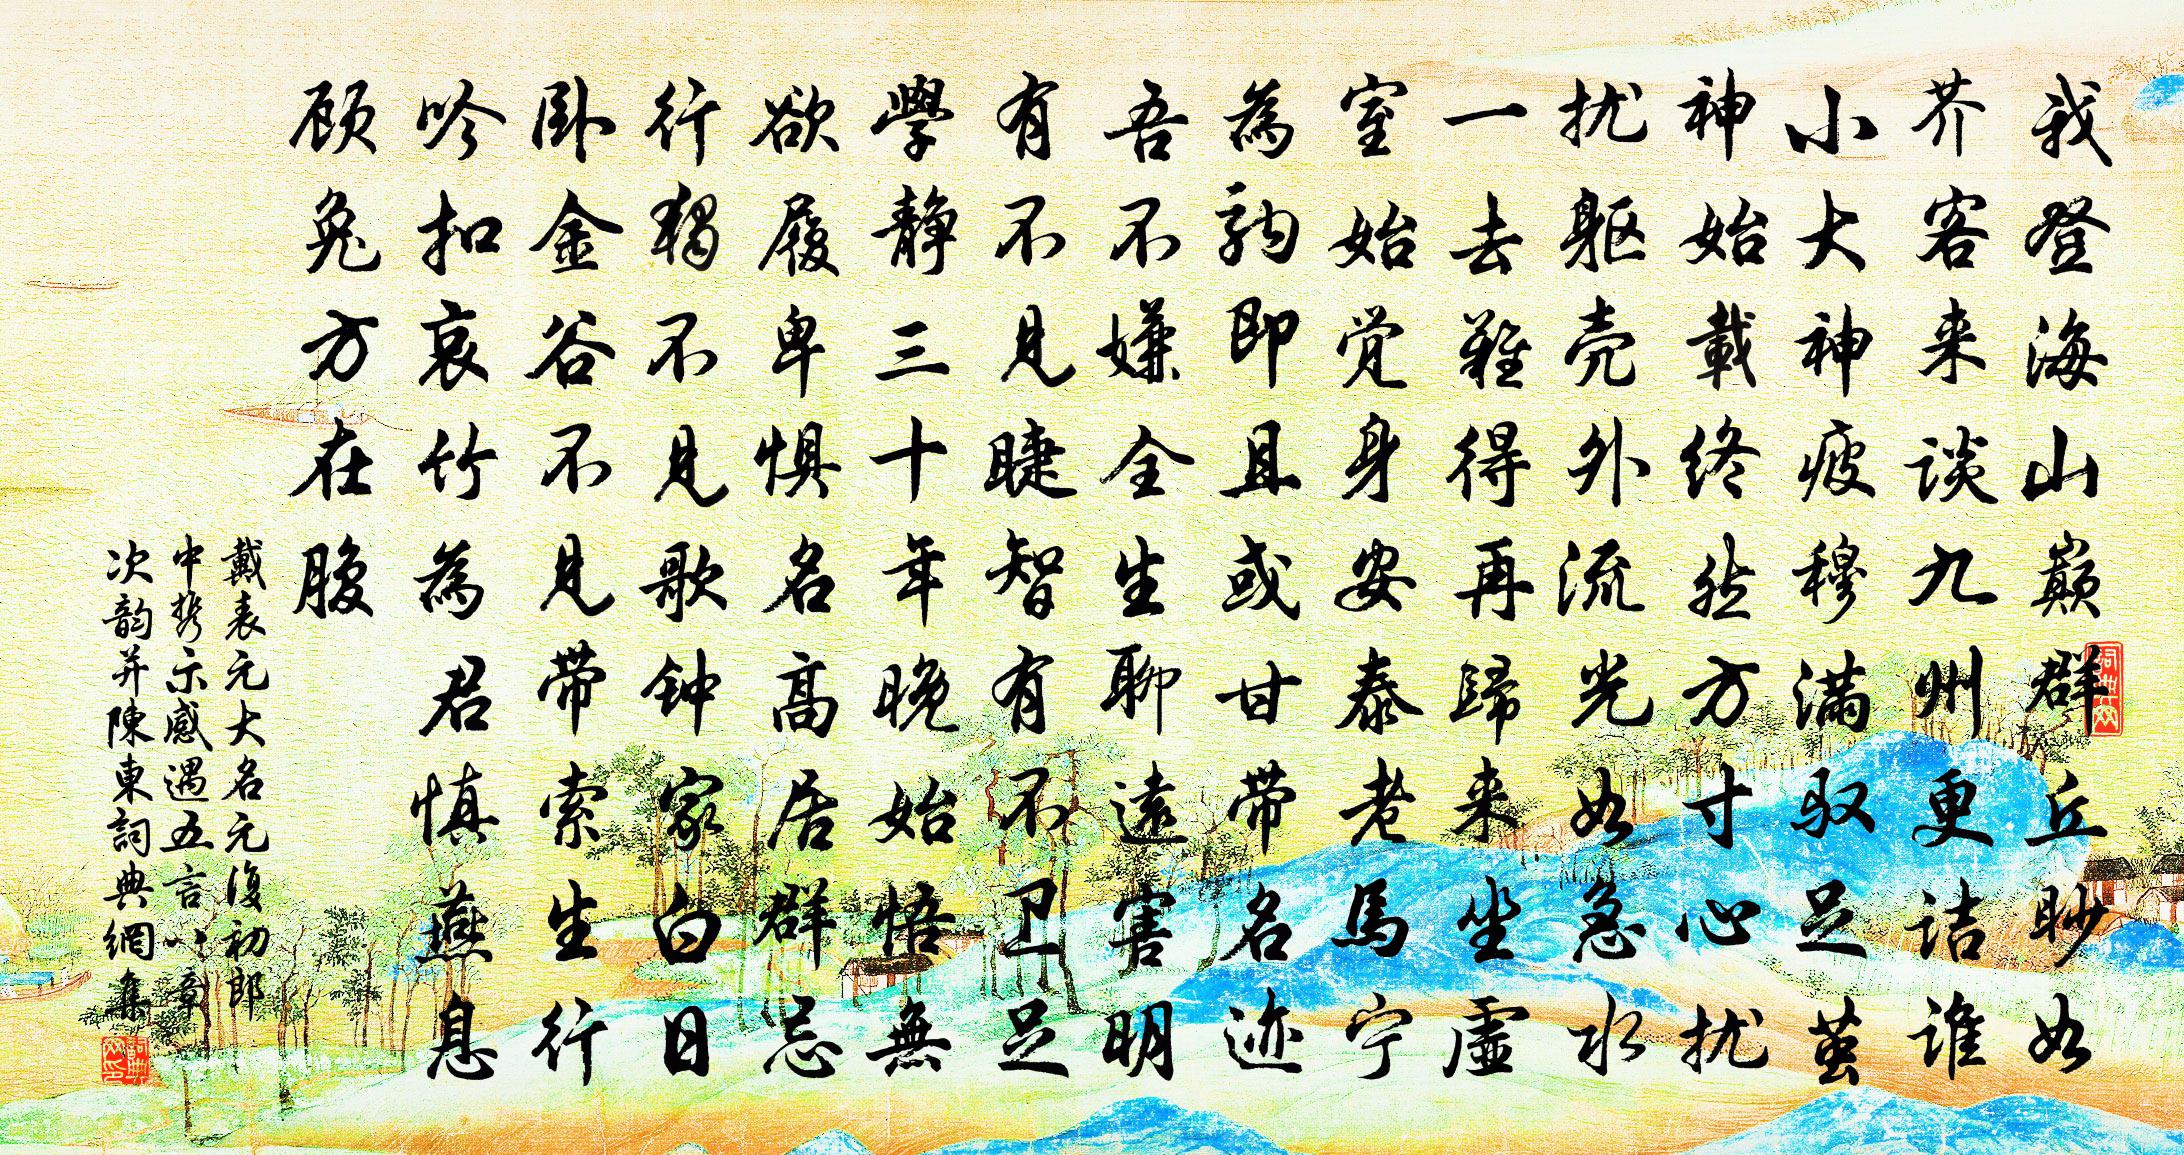 我登海山巅群丘眇如
芥客来谈九州更诘谁
小大神疲穆满驭足茧
神始载终然方寸心扰
扰躯壳外流光如急水
一去难得再歸来坐虛
室始觉身安泰老馬宁
為駒即且或甘带名迹
吾不嫌全生聊遠害明
有不見睫智有不卫足
學静三十年晚始悟無
欲履卑惧名高居群忌
行獨不見歌钟家白日
卧金谷不見带索生行
吟扣哀竹為君慎燕息
顾兔方在腹
戴表元大名元復初郎
中携示感遇五言八章
次韵并陳東詞典網集